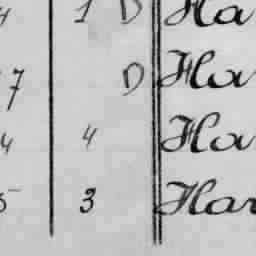 4 1 D Ha
7 D Ha
4 4 Ha
5 3 Har